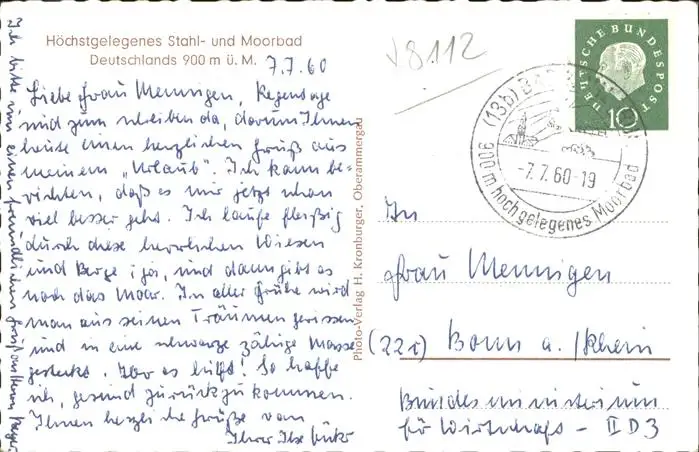 Höchstgelegenes Stahl- und Moorbad
Deutschlands 900 m ü. M.
7.7.60
Liebe Frau Mennigen, Regentage
sind zum schreiben da, darum Ihnen
heute einen herzlichen Gruß aus
meinem „Urlaub". Ich kann be-
richten, daß es mir jetzt schon
viel besser geht. Ich laufe fleißig
durch diese herrlichen Wiesen
und Berge, und dann gibt es
noch das Moor. In aller Frühe wird
man aus seinen Träumen gerissen
und in eine schwarze zähige Masse
gesteckt. Aber es hilft! So hoffe
ich, gesund zurückzukommen.
Ihnen herzliche Grüße von
Ihrer Ilse
Ich bitte um einen freundlichen Gruß an Herrn
Photo-Verlag H. Kronburger, Oberammergau
V8112
DEUTSCHE BUNDESPOST
10
(13b) BAD
-7.7.60-19
900 m hoch gelegenes Moorbad
An
Frau Mennigen
(22c) Bonn a./Rhein
Bundesministerium
für Wirtschaft - II D 3